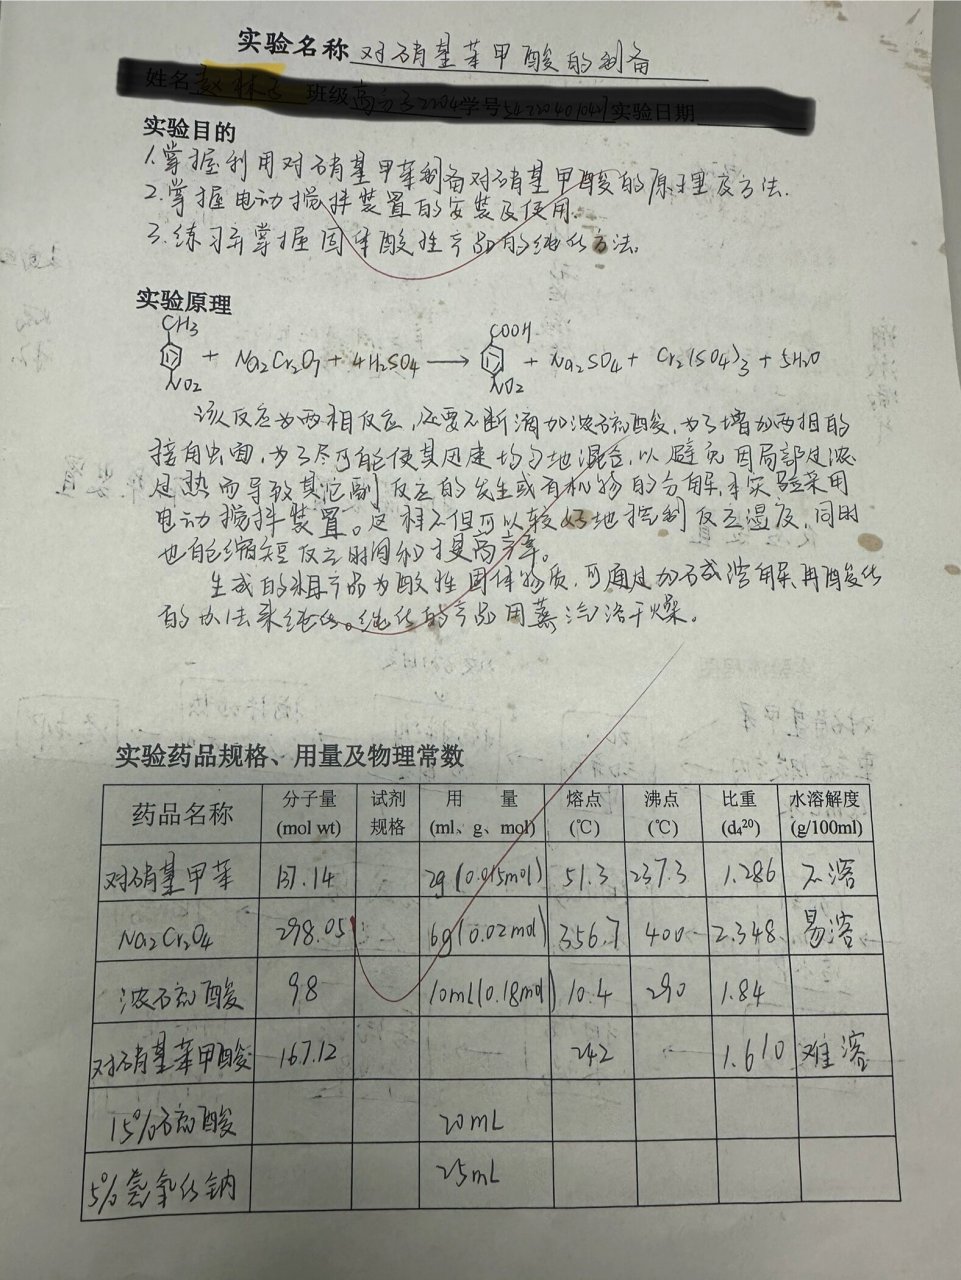 实验名称 对硝基苯甲酸的制备
姓名 班级 学号 实验日期
实验目的
1.掌握利用对硝基甲苯制备对硝基甲酸的原理及方法.
2.掌握电动搅拌装置的安装及使用.
3.练习并掌握固体酸性产品的纯化方法.
实验原理
CH3 COOH
+ Na2Cr2O7 + 4H2SO4 → + Na2SO4 + Cr2(SO4)3 + 5H2O
NO2 NO2
该反应为两相反应,还要不断滴加浓硫酸,为了增加两相的
接触面,为了尽可能使其迅速均匀地混合,以避免因局部过浓
过热而导致其它副反应的发生或有机物的分解,本实验采用
电动搅拌装置。这样不但可以较好地控制反应湿度,同时
也能缩短反应时间和提高产率。
生成的粗产品为酸性固体物质,可通过加碱溶解再酸化
的办法来纯化。纯化的产品用蒸汽浴干燥。
实验药品规格、用量及物理常数
药品名称 分子量 (mol wt) 试剂规格 用 量 (ml、g、mol) 熔点 (℃) 沸点 (℃) 比重 (d₄²⁰) 水溶解度 (g/100ml)
对硝基甲苯 137.14 2g(0.015mol) 51.3 237.3 1.286 不溶
Na2Cr2O4 298.05 6g(0.02mol) 356.7 400 2.348 易溶
浓硫酸 98 10mL(0.18mol) 10.4 290 1.84
对硝基苯甲酸 167.12 242 1.610 难溶
15%硫酸 20mL
5%氢氧化钠 25mL